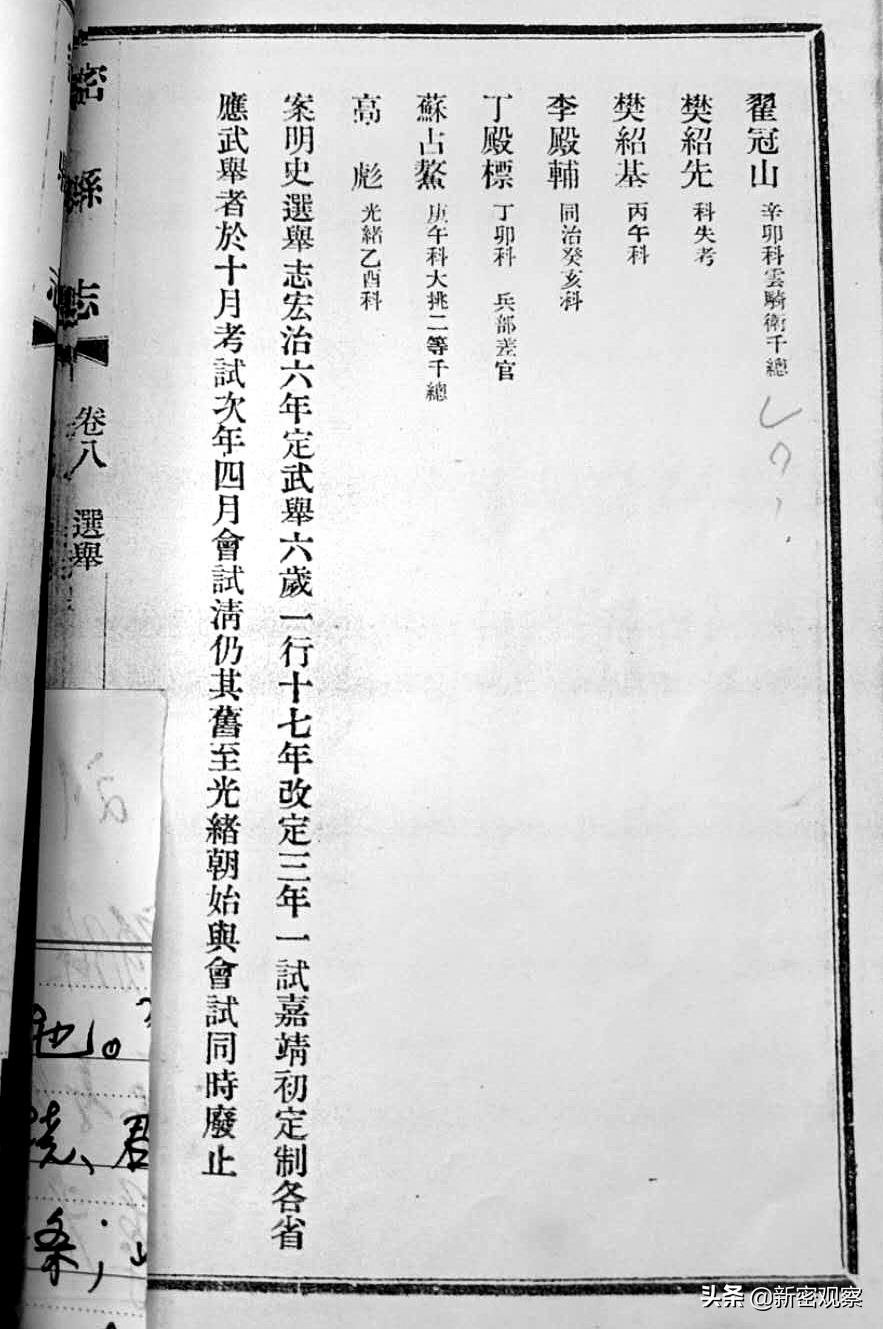 翟冠山 辛卯科雲騎衛千總
樊紹先 科失考
樊紹基 丙午科
李殿輔 同治癸亥科
丁殿標 丁卯科 兵部差官
蘇占鰲 庚午科大挑二等千總
高彪 光緒乙酉科
案明史選舉志宏治六年定武舉六歲一行十七年改定三年一試嘉靖初定制各省
應武舉者於十月考試次年四月會試淸仍其舊至光緒朝始與會試同時廢止
密縣志 卷八 選舉
也。
君
条；
头条 @新密观察